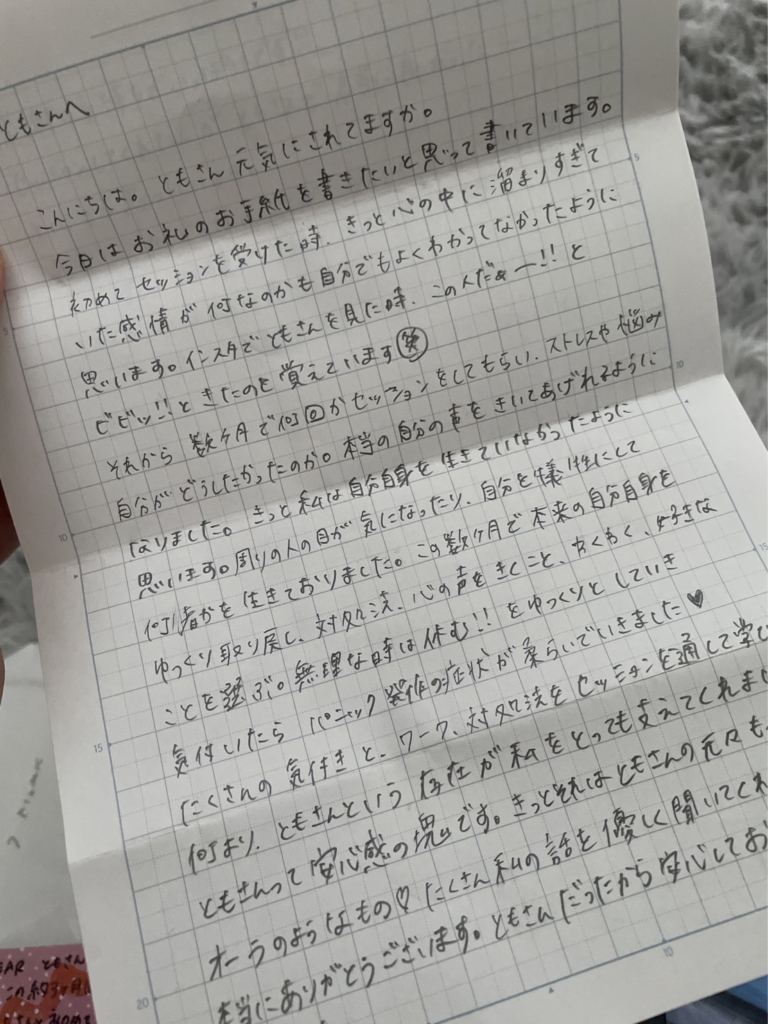 ともさんへ
こんにちは。ともさん元気にされてますか。
今日はお礼のお手紙を書きたいと思って書いています。
初めてセッションを受けた時、きっと心の中に溜まりすぎて
いた感情が何なのかも自分でもよくわかってなかったように
思います。インスタでともさんを見た時、この人だぁー!!と
ビビッ!!ときたのを覚えています笑
それから数ヶ月で何回かセッションをしてもらい、ストレスや悩み
自分がどうしたかったのか。本当の自分の声をきいてあげれるように
なりました。きっと私は自分自身を生きていなかったように
思います。周りの人の目が気になったり、自分を犠牲にして
何者かを生きておりました。この数ヶ月で本来の自分自身を
ゆっくり取り戻し、対処法、心の声をきくこと、わくわく、好きな
ことを選ぶ。無理な時は休む!!をゆっくりとしていき
気付いたらパニック発作の症状が柔らいでいきました♥
たくさんの気付きと、ワーク、対処法をセッションを通して学び
何より、ともさんという存在が私をとっても支えてくれまし
ともさんって安心感の塊です。きっとそれはともさんの元々も
オーラのようなもの♡たくさん私の話を優しく聞いてくれ
本当にありがとうございます。ともさんだったから安心してお
20
15
10
5
10
15
5
EAR ともさん
この約3ヶ月